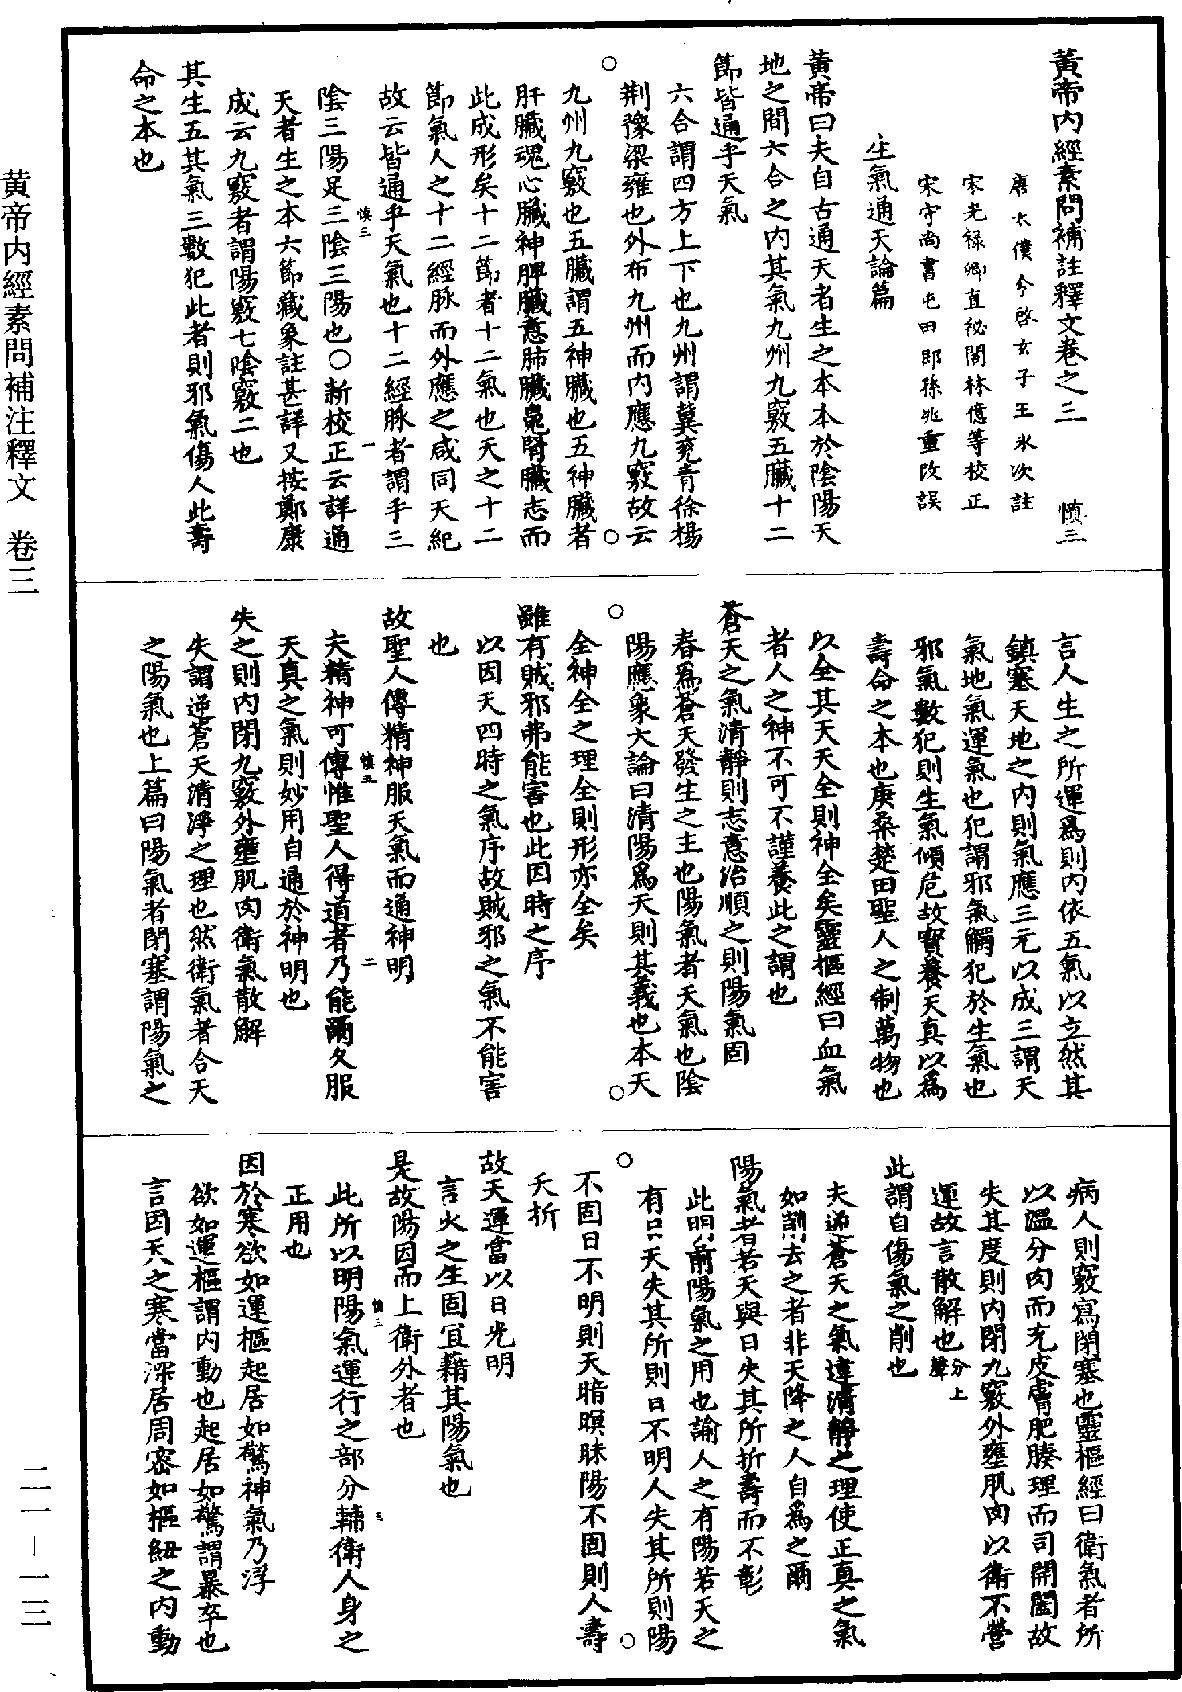 黃帝內經素問補註釋文卷之三 慎三
唐太僕令啓玄子王氷次註
宋光祿卿直祕閣林億等校正
宋守尚書屯田郎孫兆重改誤
生氣通天論篇
黃帝曰夫自古通天者生之本本於陰陽天
地之間六合之內其氣九州九竅五臟十二
節皆通乎天氣
六合謂四方上下也九州謂冀兗青徐楊
荆豫梁雍也外布九州而內應九竅故云
九州九竅也五臟謂五神臟也五神臟者
肝臟魂心臟神脾臟意肺臟魄腎臟志而
此成形矣十二節者十二氣也天之十二
節氣人之十二經脉而外應之咸同天紀
故云皆通乎天氣也十二經脉者謂手三
陰三陽足三陰三陽也○新校正云詳通
天者生之本六節藏象註甚詳又按鄭康
成云九竅者謂陽竅七陰竅二也
其生五其氣三數犯此者則邪氣傷人此壽
命之本也
言人生之所運爲則內依五氣以立然其
鎮塞天地之內則氣應三元以成三謂天
氣地氣運氣也犯謂邪氣觸犯於生氣也
邪氣數犯則生氣傾危故寳養天真以爲
壽命之本也庚桑楚曰聖人之制萬物也
以全其天天全則神全矣靈樞經曰血氣
者人之神不可不謹養此之謂也
蒼天之氣清靜則志意治順之則陽氣固
春爲蒼天發生之主也陽氣者天氣也陰
陽應象大論曰清陽爲天則其義也本天
全神全之理全則形亦全矣
雖有賊邪弗能害也此因時之序
以因天四時之氣序故賊邪之氣不能害
也
故聖人傳精神服天氣而通神明
夫精神可傳惟聖人得道者乃能爾久服
天真之氣則妙用自通於神明也
失之則內閉九竅外壅肌肉衛氣散解
失謂逆蒼天清凈之理也然衛氣者合天
之陽氣也上篇曰陽氣者閉塞謂陽氣之
病人則竅寫閉塞也靈樞經曰衛氣者所
以溫分肉而充皮膚肥腠理而司開闔故
失其度則內閉九竅外壅肌肉以衛不營
運故言散解也分上聲
此謂自傷氣之削也
夫逆蒼天之氣違清靜之理使正真之氣
如削去之者非天降之人自爲之爾
陽氣者若天與日失其所折壽而不彰
此明前陽氣之用也諭人之有陽若天之
有日天失其所則日不明人失其所則陽
不固日不明則天暗暝昧陽不固則人壽
夭折
故天運當以日光明
言火之生固宜藉其陽氣也
是故陽因而上衛外者也
此所以明陽氣運行之部分輔衛人身之
正用也
因於寒欲如運樞起居如驚神氣乃浮
欲如運樞謂內動也起居如驚謂暴卒也
言因天之寒當深居周密如樞紐之內動
慎三 一
慎三 二
慎三 三
黃帝內經素問補注釋文 卷三
二一－一三